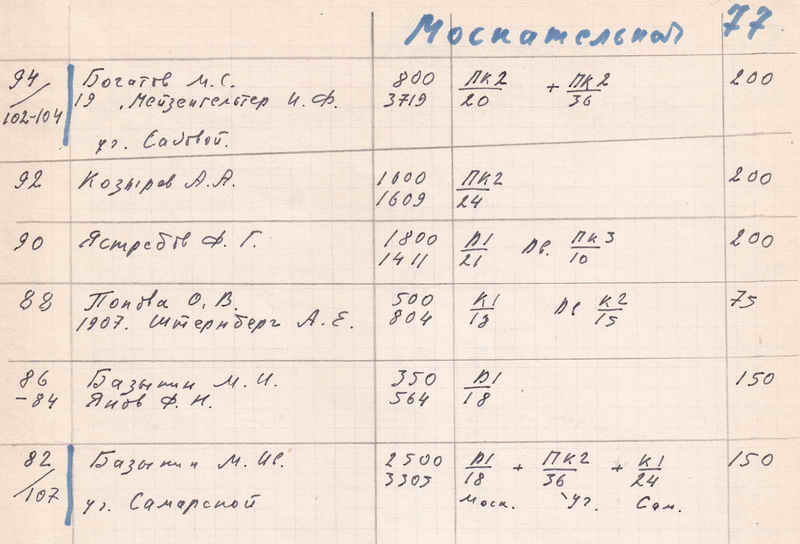 Москательная 77
94/102-104 Богатов М. С. 800 ПК2/20 + ПК2/36 200
19 Мейзенгельтер И. Ф. 3719
уг. Садовой.
92 Козырев А. А. 1600 ПК2/24 200
1609
90 Ястребов Ф. Г. 1800 Д1/21 Дв. ПК3/10 200
1411
88 Попова О. В. 500 К1/13 Дв К2/15 75
1907. Штернберг А. Е. 804
86 Базыкин М. И. 350 Д1/18 150
-84 Янов Ф. Н. 564
82/107 Базыкин М. Ив. 2500 Д1/18 + ПК2/36 + К1/24 150
3303
уг. Самарской Моск. Уг. Сам.